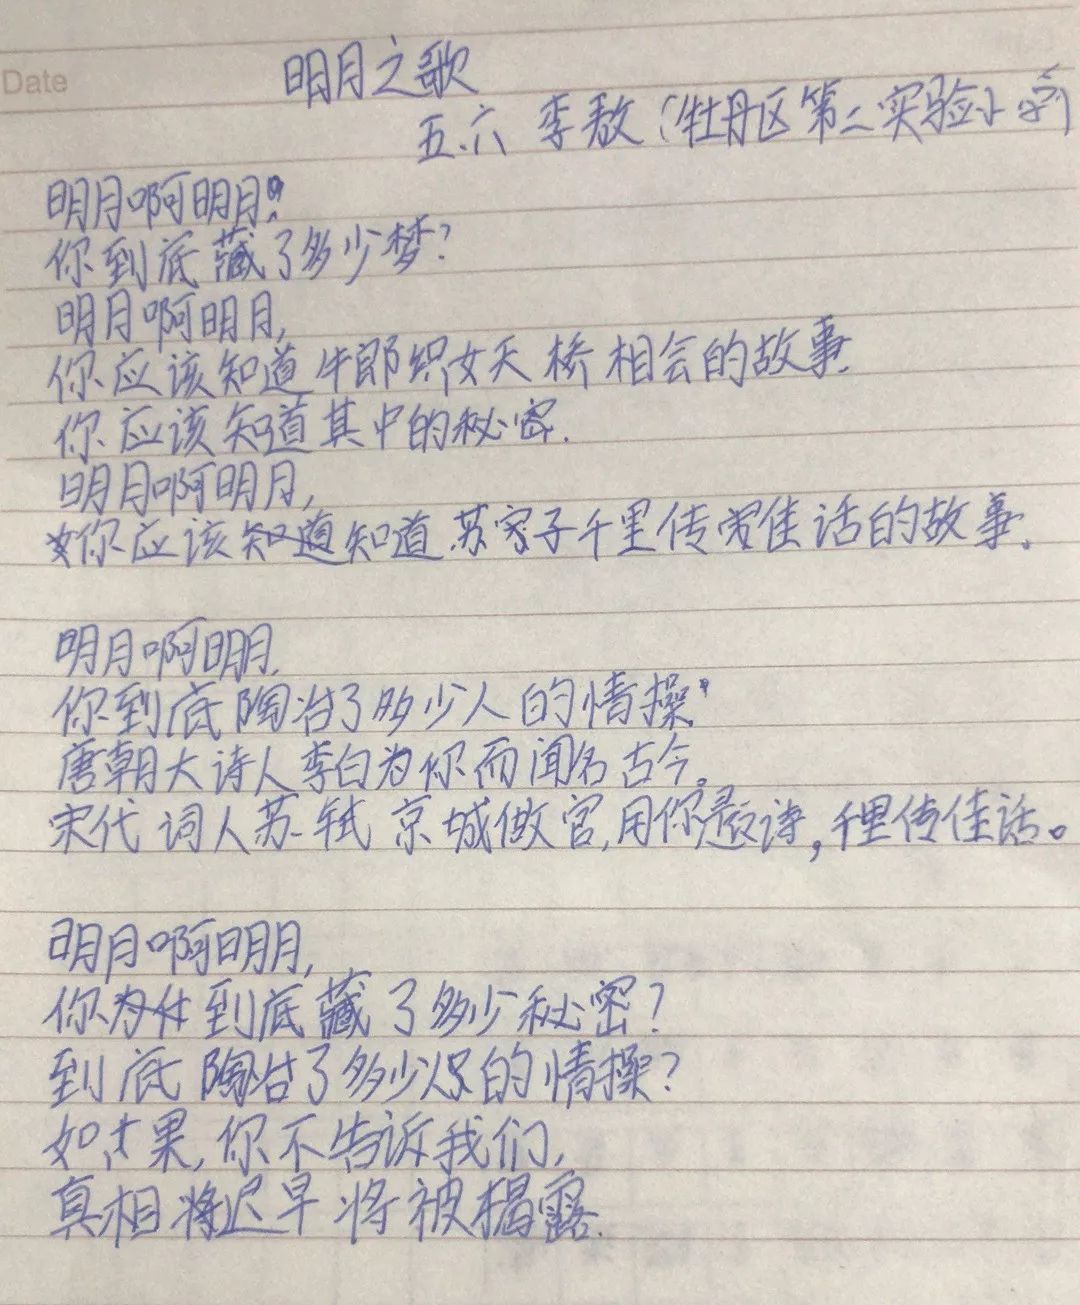 Date
明月之歌
五.六 李敖（牡丹区第二实验小学）
明月啊明月!
你到底藏了多少梦?
明月啊明月,
你应该知道牛郎织女天桥相会的故事.
你应该知道其中的秘密.
明月啊明月,
你应该知道知道苏家子千里传佳话的故事.
明月啊明月.
你到底陶冶了多少人的情操
唐朝大诗人李白为你而闻名古今。
宋代词人苏轼京城做官,用你邀诗,千里传佳话。
明月啊明月,
你到底藏了多少秘密?
到底陶冶了多少的情操?
如果,你不告诉我们,
真相将迟早将被揭露.